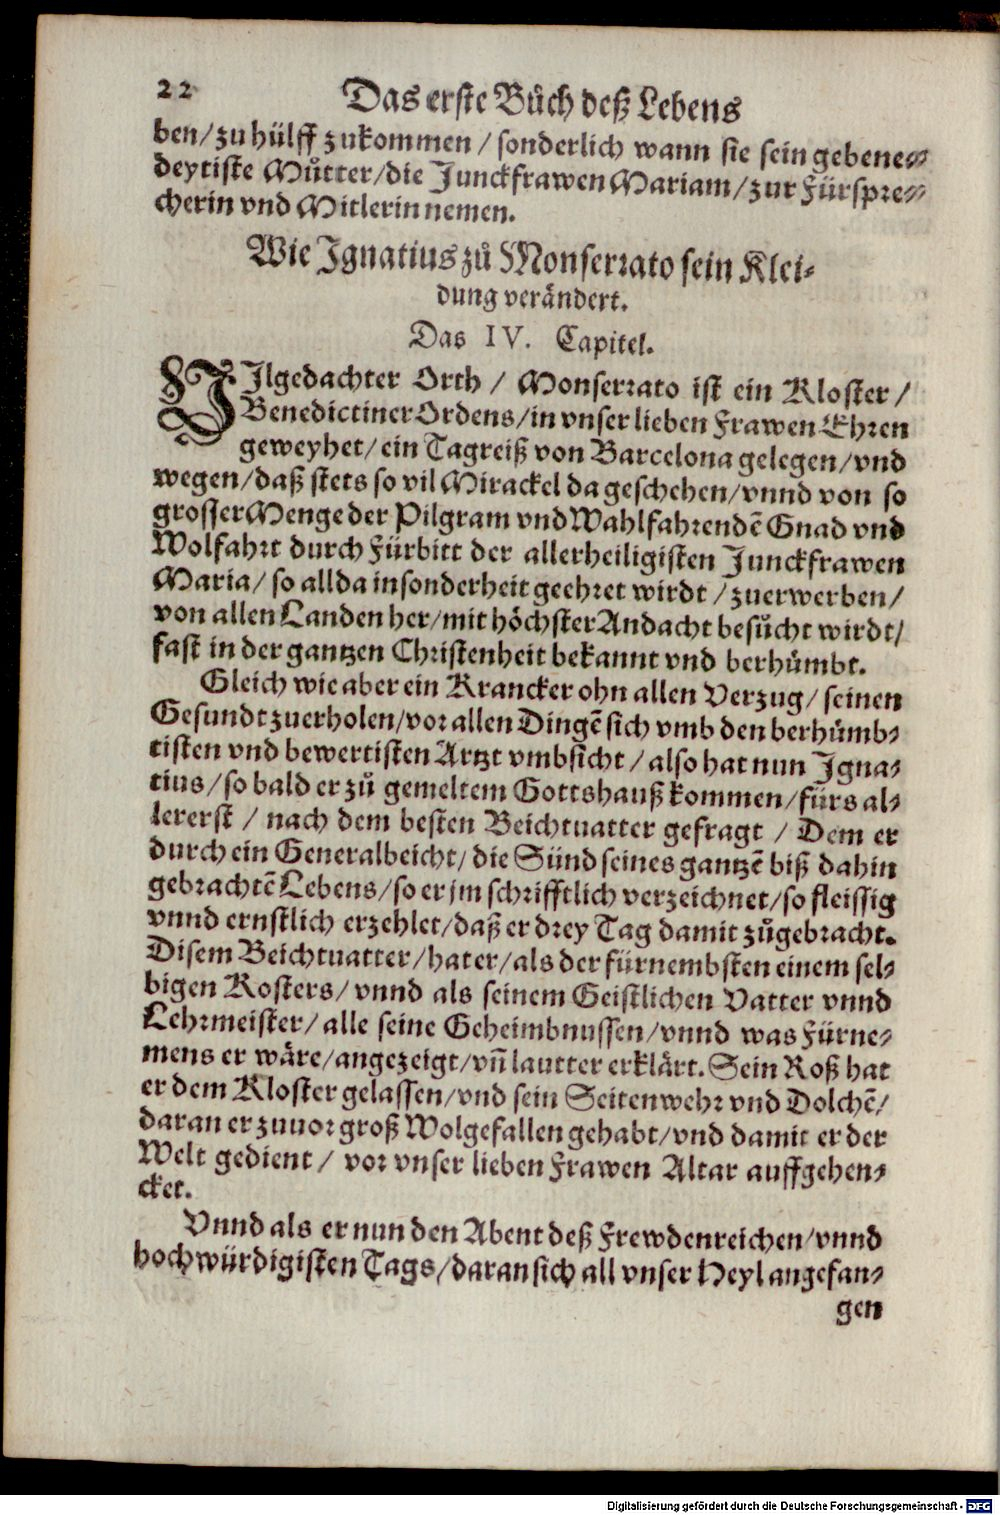 22
Das erste Bůch deß Lebens
ben/zu hülff zukommen / sonderlich wann sie sein gebene⸗
deytiste Můtter/die Junckfrawen Mariam/zur Fürspre⸗
cherin vnd Mitlerin nemen.
Wie Ignatius zů Monserrato sein Klei⸗
dung verändert.
Das IV. Capitel.
VIlgedachter Orth / Monserrato ist ein Kloster /
Benedictiner Ordens/in vnser lieben Frawen Ehren
geweyhet/ ein Tagreiß von Barcelona gelegen/vnd
wegen/daß stets so vil Mirackel da geschehen/vnnd von so
grosser Menge der Pilgram vnd Wahlfahrendē Gnad vnd
Wolfahrt durch Fürbitt der allerheiligisten Junckfrawen
Maria/ so allda insonderheit geehret wirdt /zuerwerben/
von allen Landen her/mit höchster Andacht besůcht wirdt/
fast in der gantzen Christenheit bekannt vnd berhümbt.
Gleich wie aber ein Krancker ohn allen Verzug/ seinen
Gesundt zuerholen/vor allen Dingē sich vmb den berhümb⸗
tisten vnd bewertisten Artzt vmbsicht / also hat nun Igna⸗
tius/so bald er zů gemeltem Gottshauß kommen/fürs al⸗
lererst / nach dem besten Beichtuatter gefragt / Dem er
durch ein Generalbeicht/ die Sünd seines gantzē biß dahin
gebrachtē Lebens/so er jm schrifftlich verzeichnet/so fleissig
vnnd ernstlich erzehlet/daß er drey Tag damit zůgebracht.
Disem Beichtuatter/hat er/als der fürnembsten einem sel⸗
bigen Kosters/ vnnd als seinem Geistlichen Vatter vnnd
Lehrmeister/ alle seine Geheimbnussen/vnnd was Fürne⸗
mens er wäre/angezeigt/vñ lautter erklärt. Sein Roß hat
er dem Kloster gelassen/vnd sein Seitenwehr vnd Dolchē/
daran er zuuor groß Wolgefallen gehabt/vnd damit er der
Welt gedient / vor vnser lieben Frawen Altar auffgehen⸗
cket.
Vnnd als er nun den Abent deß Frewdenreichen/vnnd
hochwürdigisten Tags/daran sich all vnser Heyl angefan⸗
gen
Digitalisierung gefördert durch die Deutsche Forschungsgemeinschaft - DFG